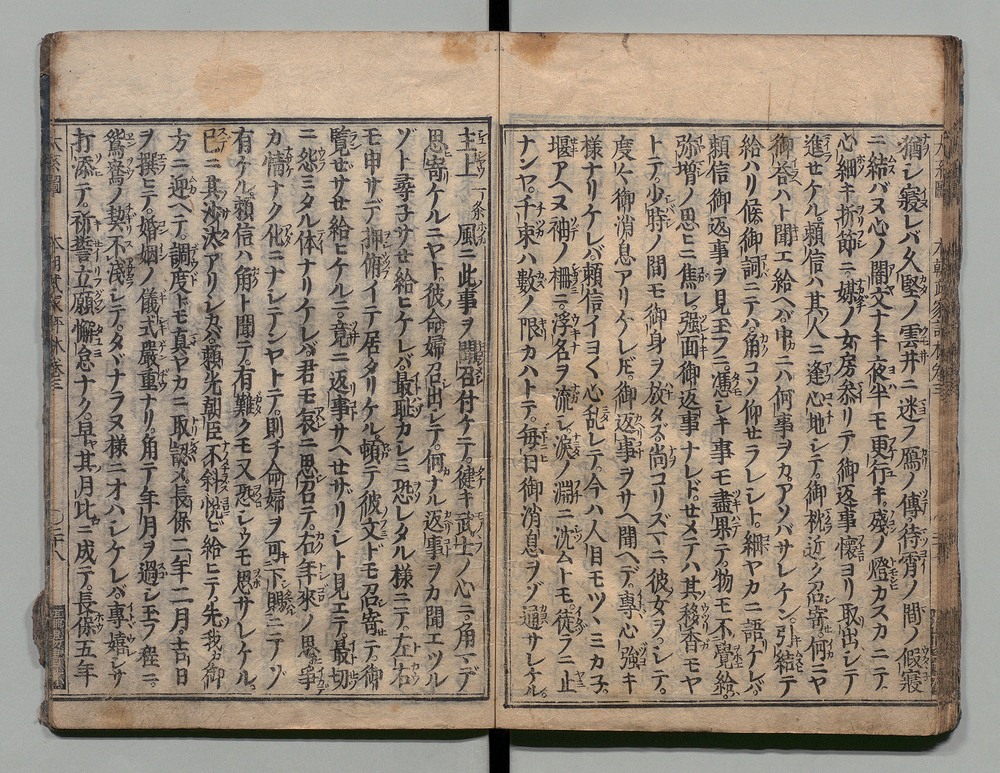 猶シ寢レバ久堅ノ雲井ニ迷フ鴈ノ傳待宵ノ間ノ假寢
ニ結バヌ心ノ闇文ナキ夜半モ更行キ盛ノ燈カスカニテ
心細キ折節ニ媒ノ女房參リテ御返事懷ヨリ取出シテ
進セケル頼信ハ其人ニ逢心地シテ御枕近ク召寄何ニヤ
御答ハト聞エ給ヘバ中ニハ何事ヲカアソバサレケン引結テ
給ハリ候御詞ニテハ角コソ仰セラレシト細ヤカニ語リケレバ
頼信御返事ヲ見玉フニ憑シキ事モ盡果テ物モ不覺給
弥増ノ思ヒニ焦レ强面御返事ナレドモセメテハ其移香モヤ
トテ少時ノ間モ御身ヲ放タズ尚コリズマニ彼女ヲシテ
度々御消息アリケレドモ御返事ヲサヘ聞ヘデ專心強キ
樣ナリケレバ頼信イヨク心乱レテ今ハ人目モツヽミカ子
堰アヘヌ袖ノ柵ニ浮名ヲ流シ淚ノ淵ニ沈ムトモ徒ラニ止
ナンヤ千束ハ數ノ限カハトテ毎日御消息ヲゾ通サレケル
主上一条風ニ此事ヲ聞召付ケテ健キ武士ノ心ニ角マデ
思寄ケルニヤト彼命婦召出シテ何ナル返事ヲカ聞エツル
ゾト尋子サセ給ヒケレバ最恥カシミ恐レタル樣ニテ左右
モ申サデ押俯イテ居タリケル頓テ彼文ドモ召寄テ御
覽ゼサセ給ヒケルニ竟ニ返事サヘセザリシト見エテ最切
ニ怨ミタル体ナリケレバ君モ哀ニ思召テ右年來ノ思爭
カ情ナク化ニナシテンヤトテ則チ命婦ヲ可下賜ニテゾ
有ケル頼信ハ角ト聞テ有難クモ又恐レウモ思サレケル
已ニ其沙汰アリシカバ頼光朝臣不斜悅ビ給ヒテ先我御
方ニ迎ヘテ調度ドモ真ヤカニ取認メ長保二年二月吉日
ヲ撰ヒテ婚姻ノ儀式嚴重ナリ角テ年月ヲ過シ玉フ程ニ
鴛鴦ノ契不淺シテタヾナラヌ樣ニオハシケレバ專嬉シサ
打添テ祢誓立願懈怠ナク早ヤ其月比ニ成テ長保五年